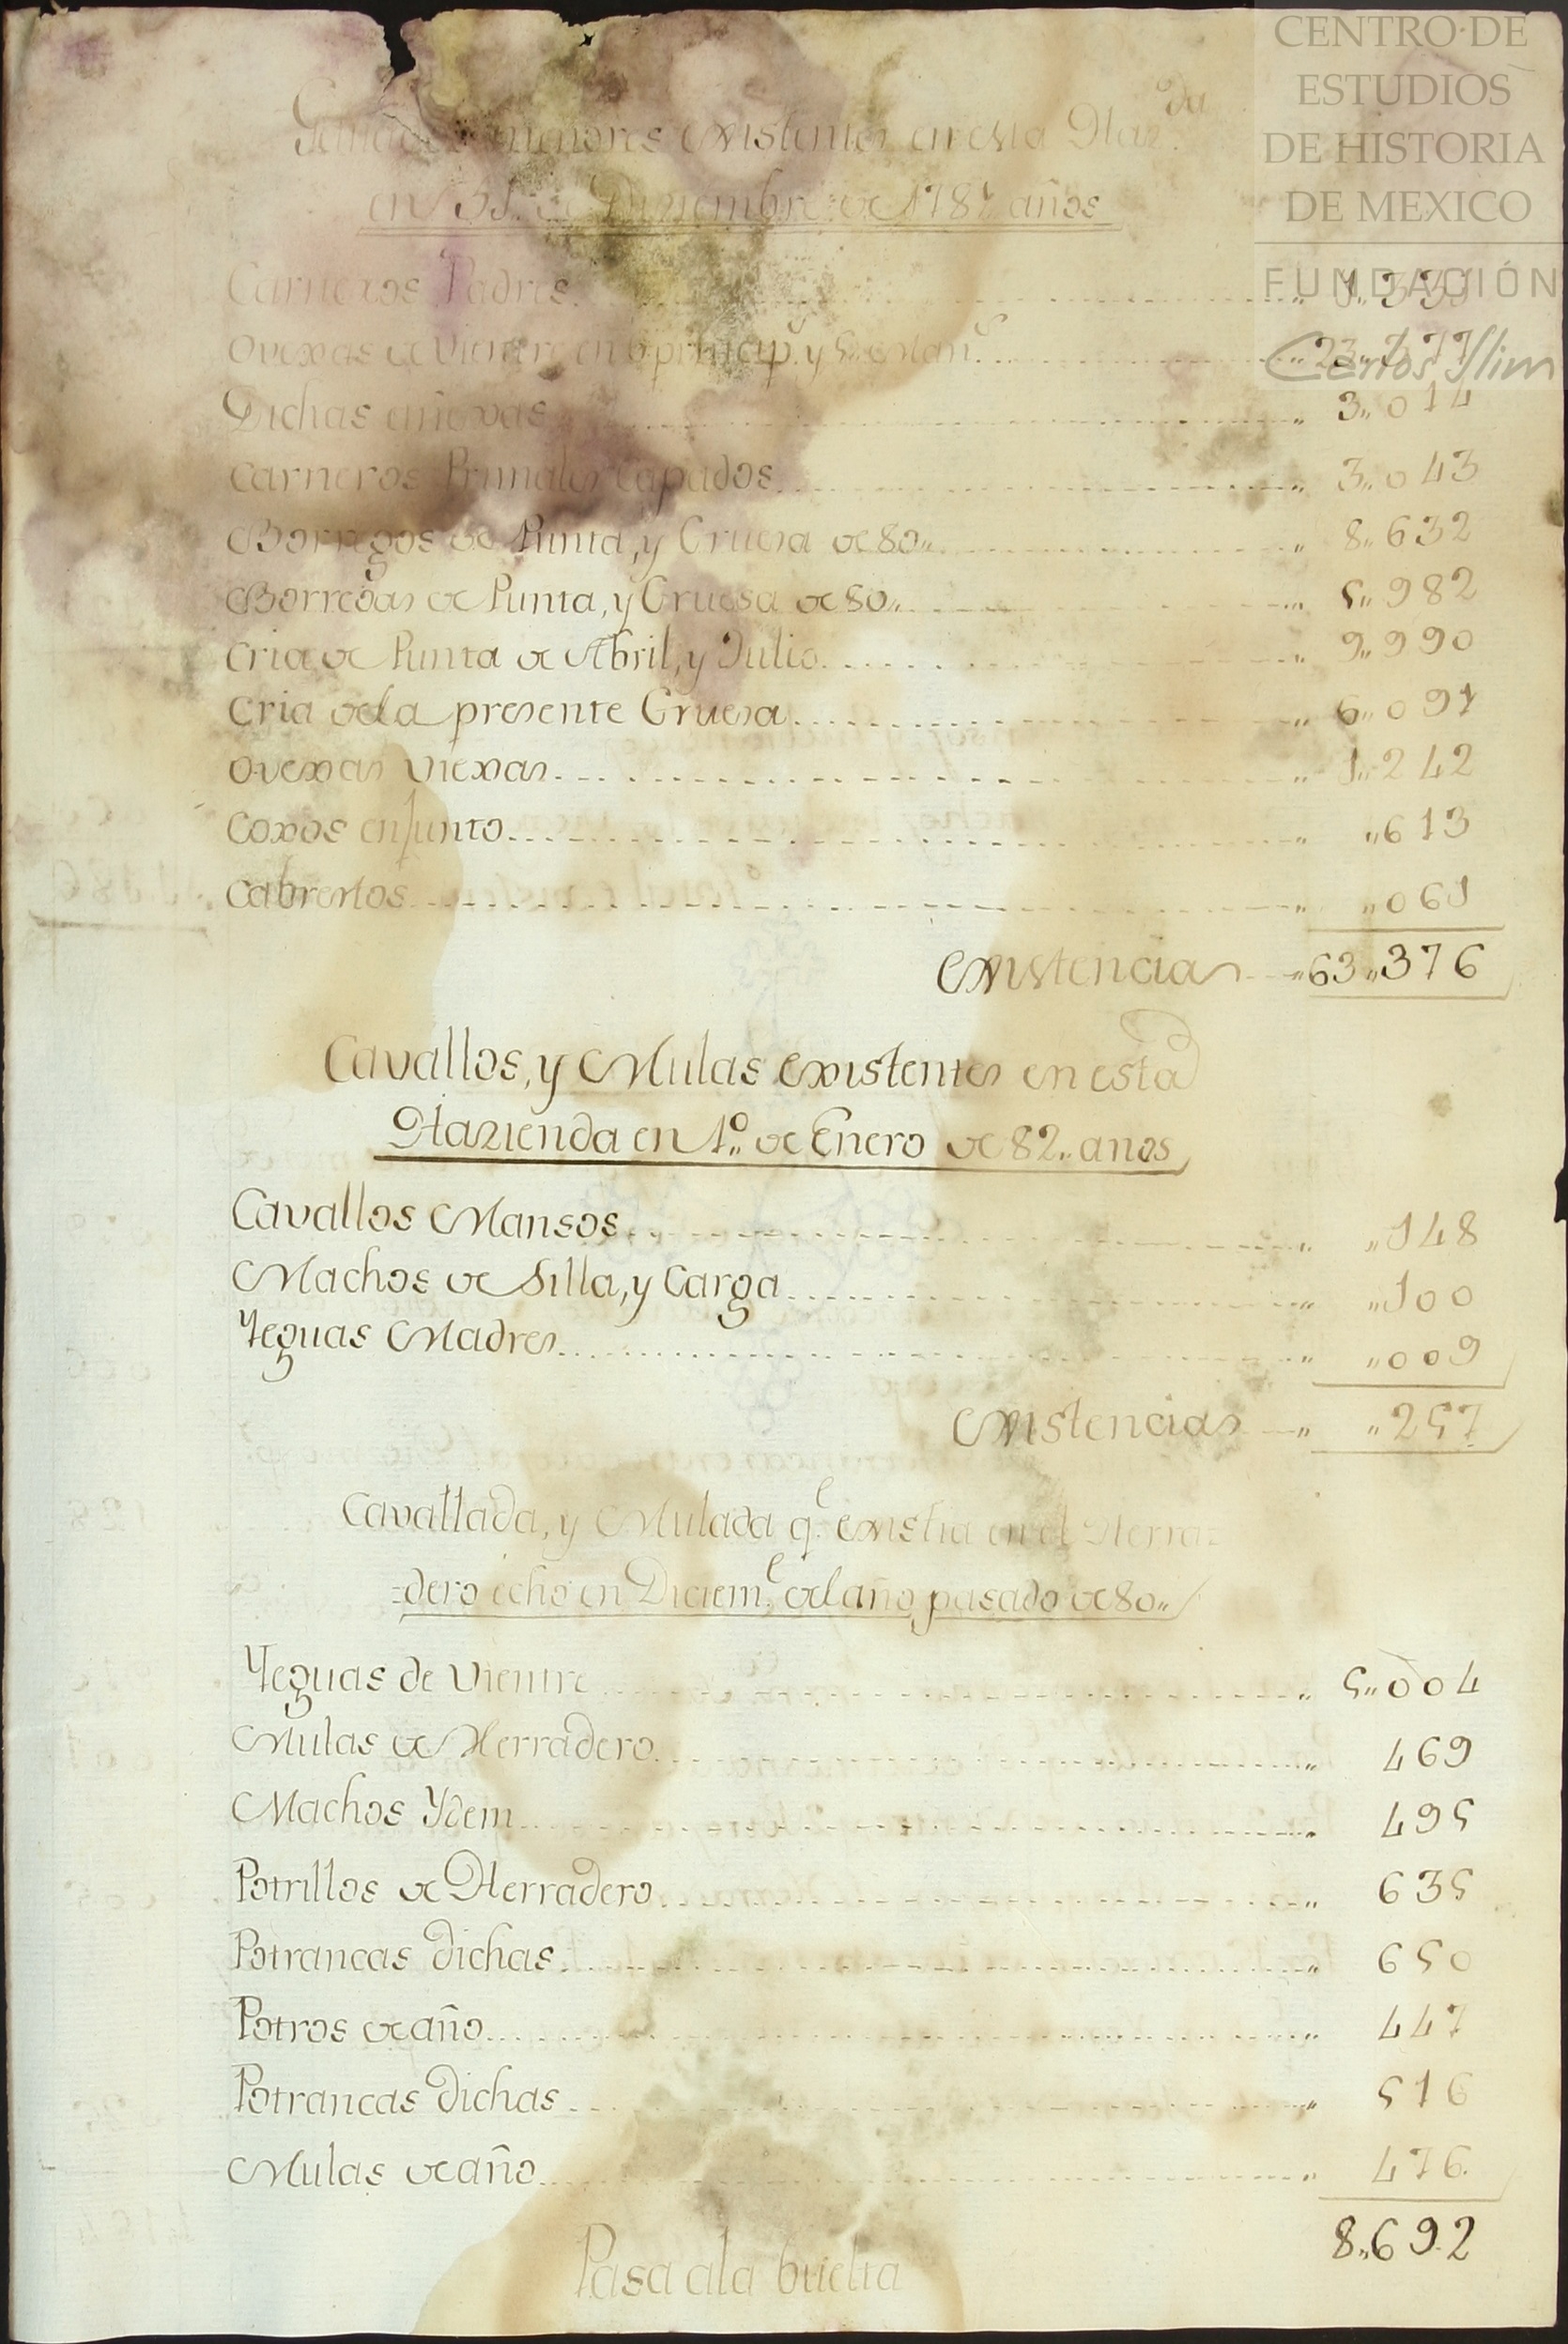 CENTRO DE
ESTUDIOS
DE HISTORIA
DE MEXICO
FUNDACIÓN
Carlos Slim
Ganados menores existentes en esta Haz.da
en 31. de Diziembre de 1781 años
Carneros Padres 1,,331
Ovexas de Vientre en 6 princip.s y 5 estan.s ,,23,,377
Dichas añexas ,, 3,,014
Carneros Primales Capados ,, 3,,043
Borregos de Punta, y Gruesa de 80,, ,, 8,,632
Borregas de Punta, y Gruesa de 80,, ,, 5,,982
Cria de Punta de Abril, y Julio ,, 9,,990
Cria dela presente Gruesa ,, 6,,091
Ovexas Viexas ,, 1,,242
Coxos en junto ,, ,,613
Cabrestos ,, ,,061
Existencias ,,63,,376
Cavallos, y Mulas existentes en esta
Hazienda en 1.º de Enero de 82,, anos
Cavallos Mansos ,, ,,148
Machos de Silla, y Carga ,, ,,100
Yeguas Madres ,, ,,009
Existencias ,, ,,257
Cavallada, y Mulada q.e existia en el Herra=
=dero echo en Diciem.e del año pasado de 80,,
Yeguas de Vientre ,, 5,,004
Mulas de Herradero ,, 469
Machos Ydem ,, 495
Potrillos de Herradero ,, 635
Potrancas dichas ,, 650
Potros de año ,, 447
Potrancas dichas ,, 516
Mulas de año ,, 476.
8,,692
Pasa ala buelta